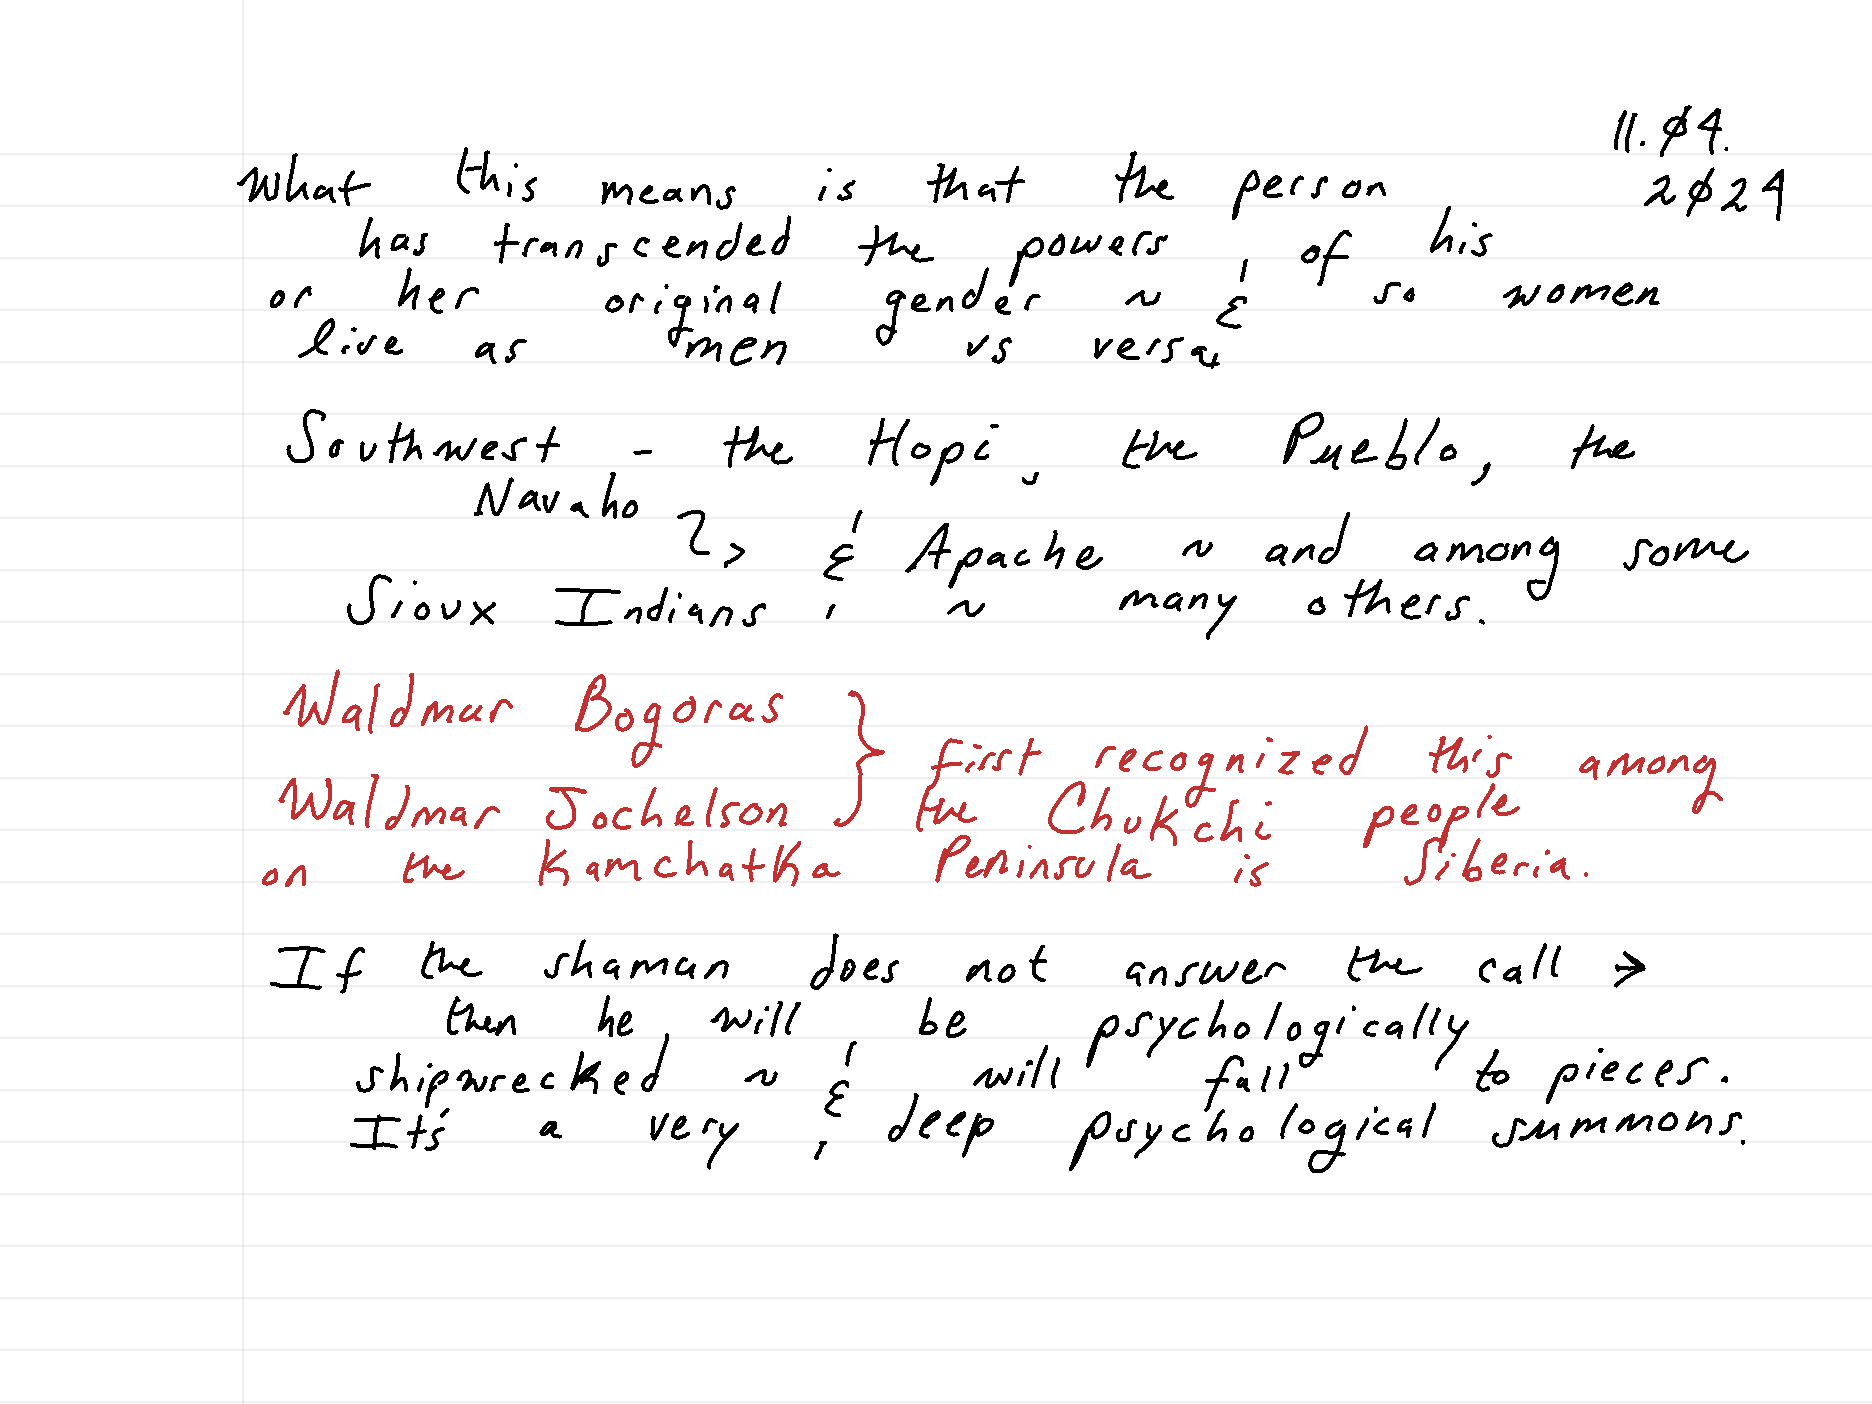 11.04.
2024
What this means is that the person
has transcended the powers of his
or her original gender ~ & so women
live as men vs versa
Southwest - the Hopi, the Pueblo, the
Navaho
> & Apache ~ and among some
Sioux Indians, ~ many others.
Waldmar Bogoras
Waldmar Jochelson } first recognized this among
the Chukchi people
on the Kamchatka Peninsula is Siberia.
If the shaman does not answer the call →
then he will be psychologically
shipwrecked ~ & will fall to pieces.
It's a very, deep psychological summons.